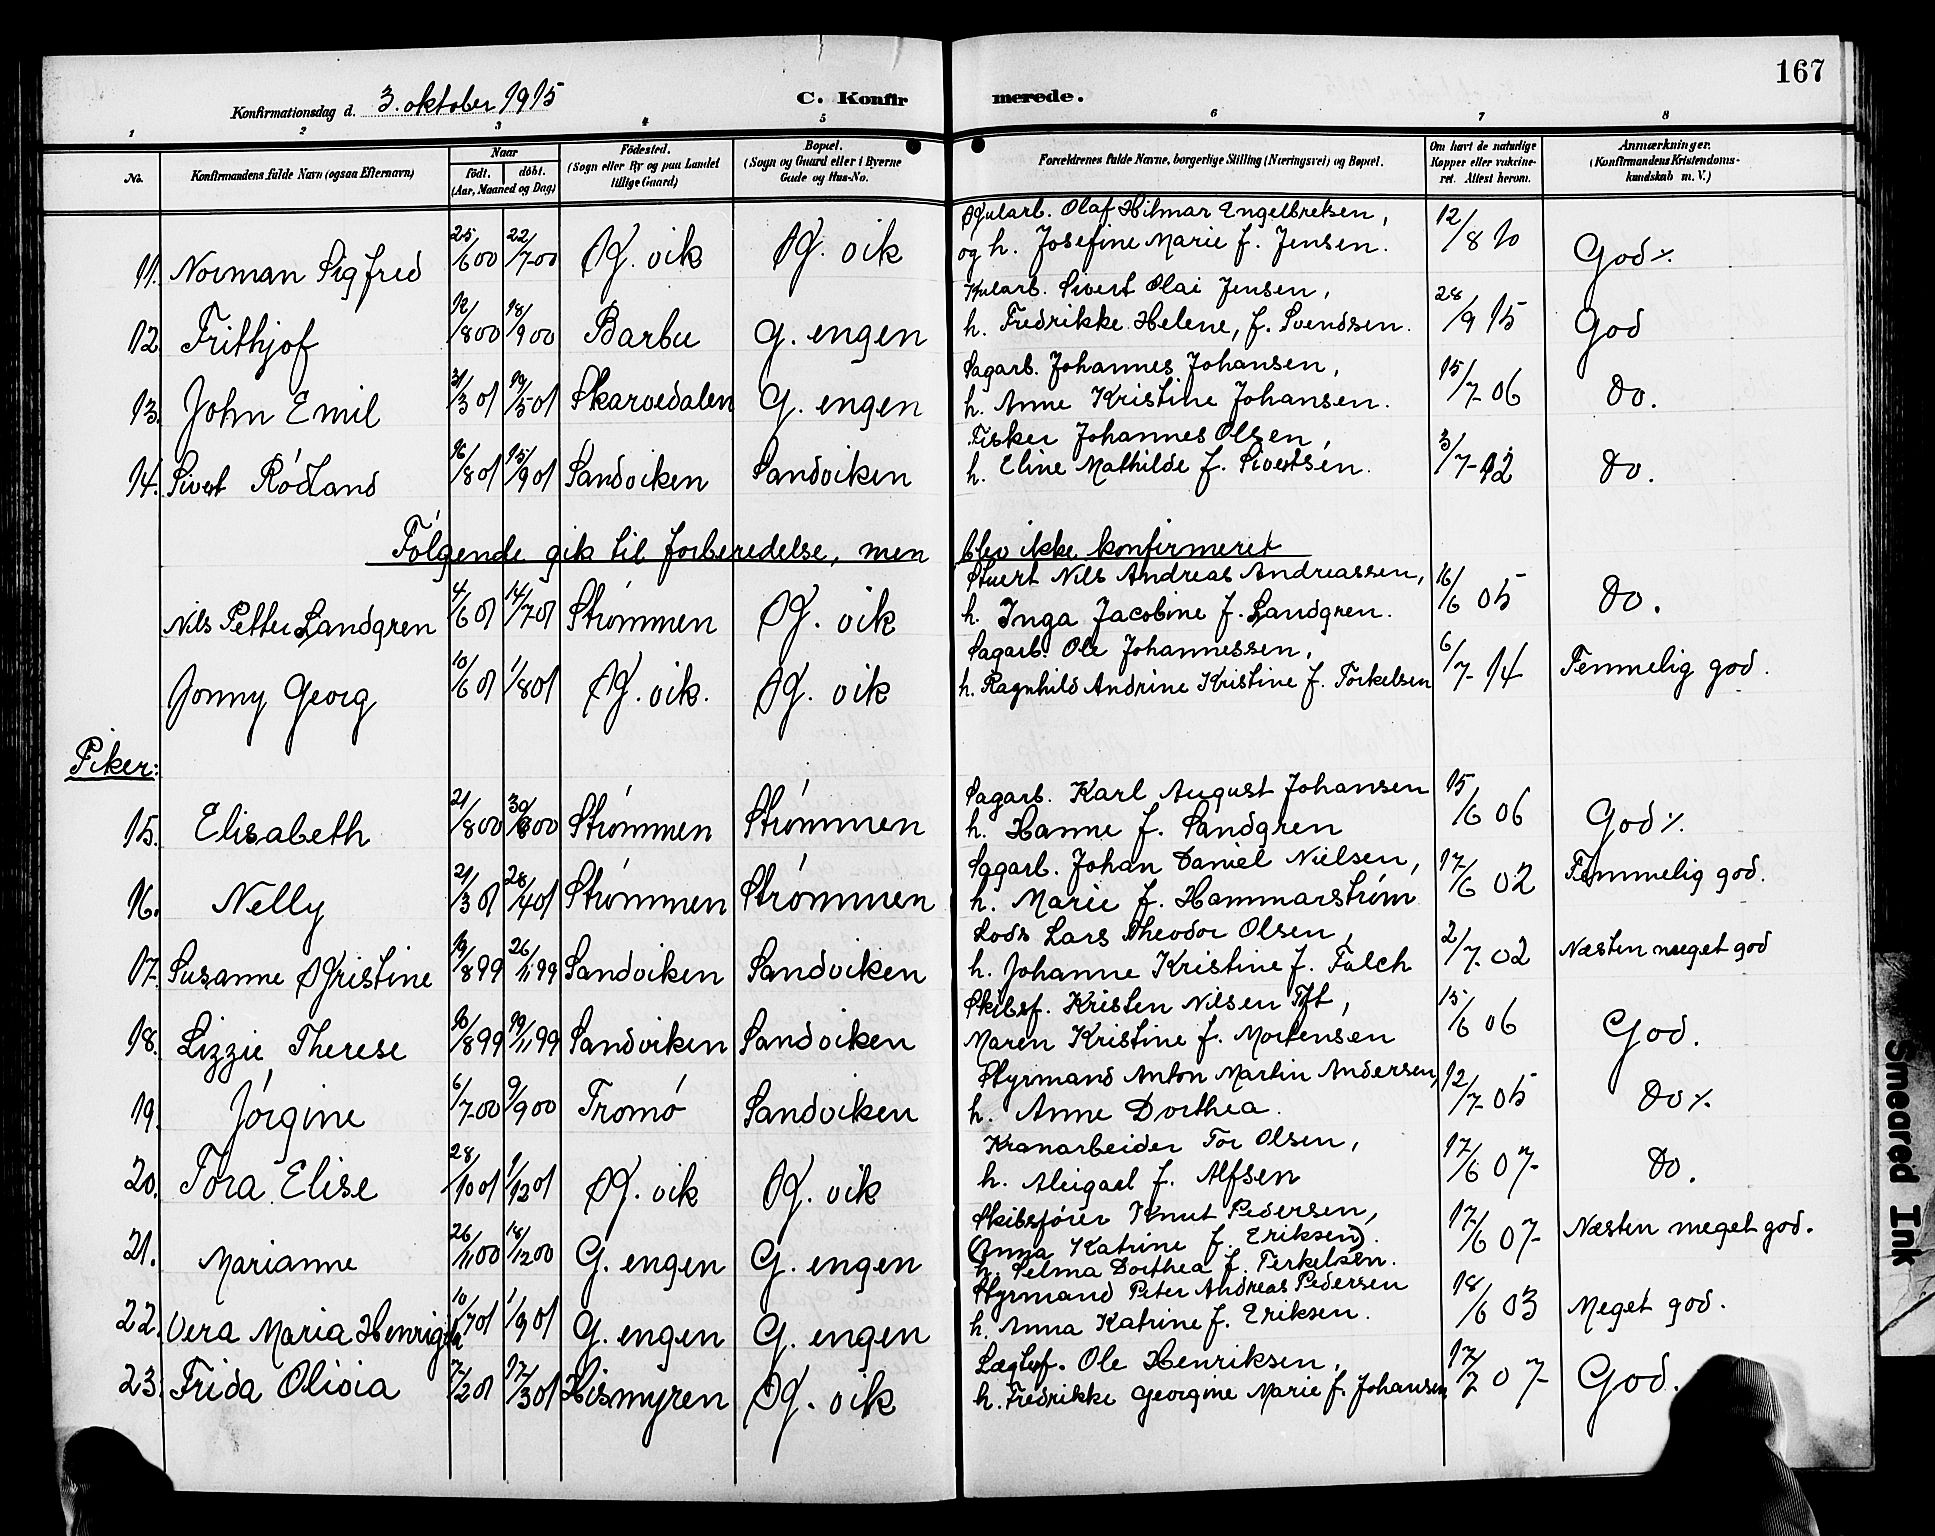 167
Konfirmationsdag d. 3. oktober 1915 C. Konfirmerede.
1 2 3 4 5 6 7 8
No. Konfirmandens fulde Navn (ogsaa Efternavn) Naar født. døbt. (Aar, Maaned og Dag) Fødested. (Sogn eller By og paa Landet tillige Gaard) Bopæl. (Sogn og Gaard eller i Byerne Gade og Hus-No. Forældrenes fulde Navne, borgerlige Stilling (Næringsvei) og Bopæl. Om havt de naturlige Kopper eller vakcineret. Attest herom. Anmærkninger. (Konfirmandens Kristendomskundskab m. V.)
Olaf Hilmar Engelbretsen,
11. Norman Sigfred 25/6 00 22/7 00 vik vik og h. Josefine Marie f. Jensen. 12/8 10 God
Sivert Olai Jensen,
12. Frithjof 12/8 00 18/9 00 Barbu G. engen h. Fredrikke Helene, f. Svendsen. 28/9 15 God
Sagarb. Johannes Johansen,
13. John Emil 31/3 01 19/5 01 Skarvedalen G. engen h. Anne Kristine Johansen. 15/7 06 Do.
Fisker Johannes Olsen,
14. Sivert Rödland 16/8 01 15/9 01 Sandviken Sandviken h. Eline Mathilde f. Sivertsen. 3/7-12 Do.
Følgende gik til forberedelse, men blev ikke konfirmeret
Stuert Nils Andreas Andreassen,
Nils Petter Landgren 4/6 01 14/7 01 Strømmen vik h. Inga Jacobine f. Landgren. 16/6 05 Do.
Sagarb. Ole Johannessen,
Jonny Georg 10/6 01 1/8 01 vik. vik h. Ragnhild Andrine Kristine f. Torkelsen 6/7-14 Temmelig god.
Piker:
Sagarb. Karl August Johansen
15. Elisabeth 21/8 00 Strømmen Strømmen h. Hanne f. Sandgren 15/6 06 God
Sagarb. Johan Daniel Nielsen,
16. Nelly 21/3 01 28/4 01 Strømmen Strømmen h. Marie f. Hammarstrøm 17/6 02 Temmelig god.
Lods Lars Theodor Olsen,
17. Susanne Kristine 19/8 99 26/11 99 Sandviken Sandviken h. Johanne Kristine f. Falch 2/7. 02 Næsten meget god
Skibsf. Kristen Nilsen Toft,
18. Lizzie Therese 10/8 99 19/11 99 Sandviken Sandviken Maren Kristine f. Mortensen 15/6 06 God.
Styrmand Anton Martin Andersen,
19. Jørgine 6/7 00 9/9 00 Tromö Sandviken h. Anne Dorthea. 12/7 05 Do
Kranarbeider Tor Olsen,
20. Tora Elise 28/10 01 1/12 01 vik vik h. Abigael f. Alfsen 17/6 07 Do.
Skibsfører Knut Pedersen,
(Anna Katrine f. Eriksen).
21. Marianne 26/11 00 18/12 00 G. engen G. engen h. Selma Dorthea f. Terkelsen. 17/6 07 Næsten meget god.
Styrmand Peter Andreas Pedersen
22. Vera Maria 10/7 01 1/9 01 G. engen G. engen h. Anna Katrine f. Eriksen. 18/6 03 Meget god.
Ole Henriksen,
23. Frida Olivia 17/2 01 17/3 01 Hismyren vik h. Fredrikke Georgine Marie f. Johansen 17/7 07 God.
Smeared Ink